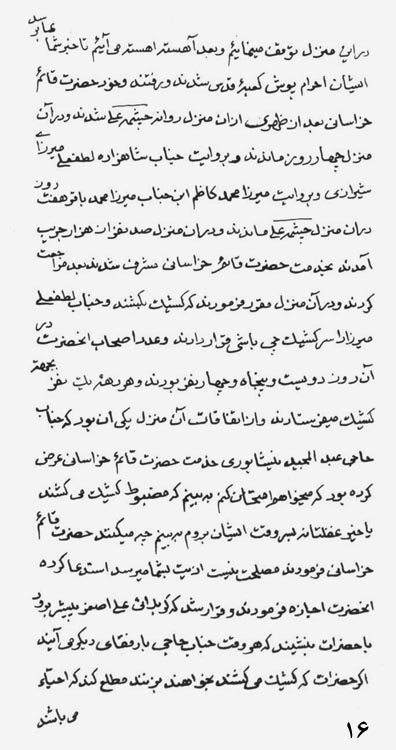 بما بر
در این منزل توقف مینمائیم و بعد آهسته اهسته می آئیم تا خبر بشما
ایشان احرام پوش کعبهٔ قدس شدند و رفتند و خود حضرت قائم
خراسانی بعد از ظهری از ان منزل روانه چشمه علی شدند و در آن
منزل چهار روز ماندند و بروایت جناب شاهزاده لطفعلی میرزای
شیرازی و بروایت میرزا محمد کاظم ابن جناب میرزا محمد باقر هفت روز
در ان منزل چشمه علی ماندند و در ان منزل صد نفر از هزار جریب
آمدند بخدمت حضرت قائم خراسانی مشرف شدند بعد مراجعت
کردند و در آن منزل مقرر فرمودند که کشیک بکشند و جناب لطفعلی
میرزا را سر کشیک چی باشی قرار دادند و عدد اصحاب انحضرت در
آن روز دویست و پنجاه و چهار نفر بودند و هر دفعه نفر بجهة
کشیک میفرستادند و از اتفاقات آن منزل یکی ان بود که جناب
حاجی عبد المجید نیشابوری خدمت حضرت قائم خراسانی عرض
کرده بود که میخواهم امتحان کنم به بینم که مضبوط کشیک می کشند
یا خیر غفلتا بسر وقت ایشان بروم به بینم چه میکنند حضرت قائم
خراسانی فرمودند مصلحت نیست اذیت بشما میرسد استدعا کرده
انحضرت اجازه فرمودند و قرار شد که کربلائی علی اصغر پیشتر برود
با حضرات بنشیند که هر وقت جناب حاجی با رفقای دیگر می آیند
اگر حضرات که کشیک می کشند بخواهند بزنند مطلع کند که احباء
می باشند
۱۶